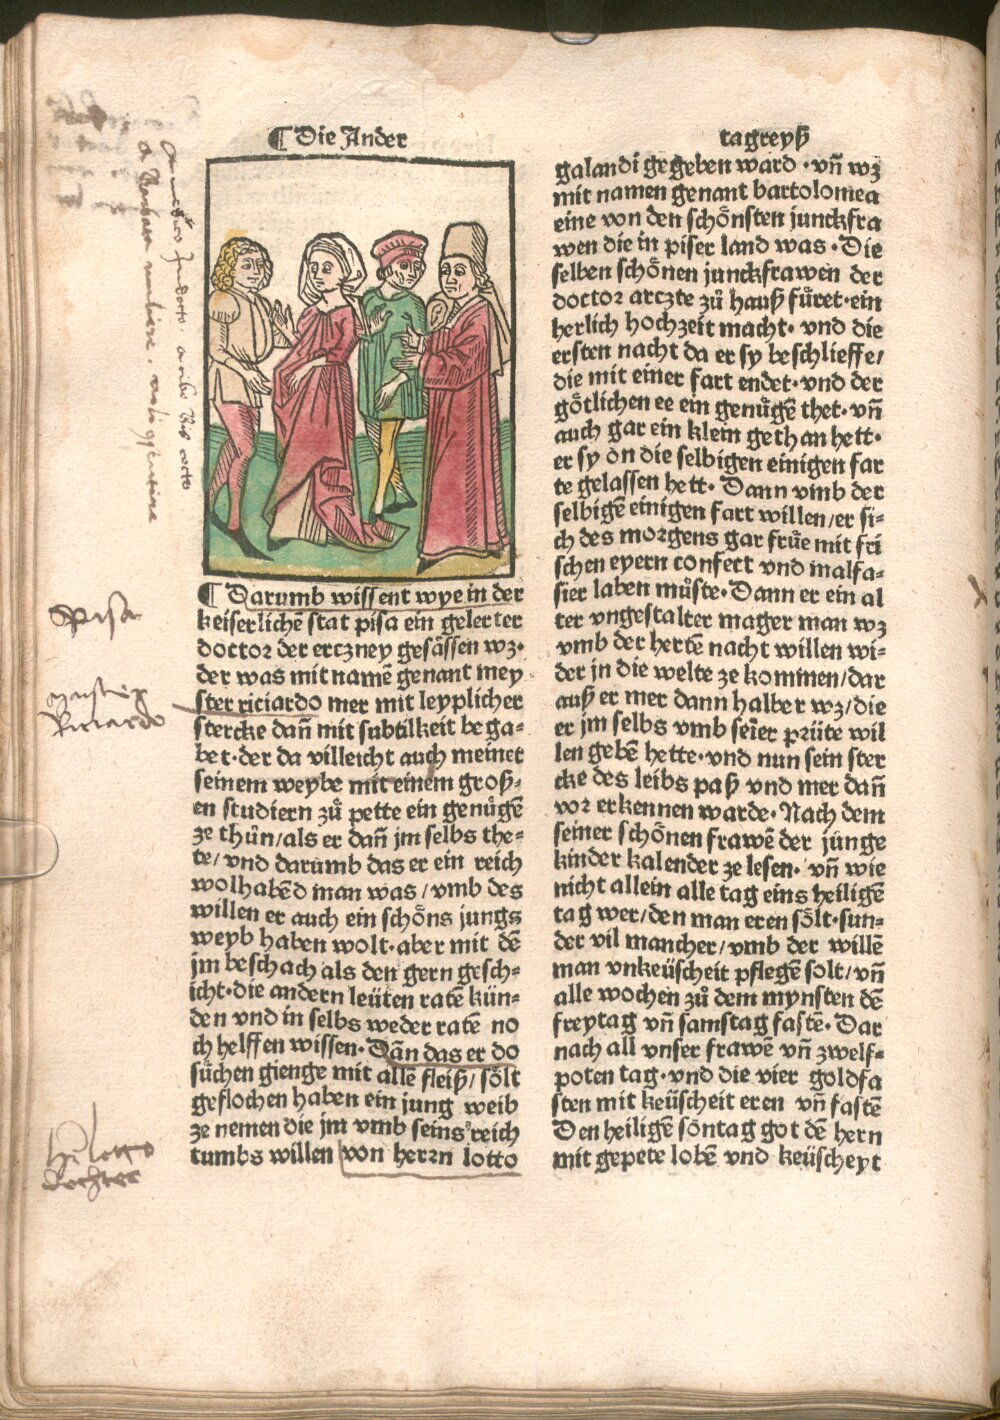 ¶ Die Ander
tagreyß
¶ Darumb wissent wye in der
keiserlichē stat pisa ein gelerter
doctor der erczney gesåssen wz·
der was mit namē genant mey
ster riciardo mer mit leyplicher
stercke dañ mit subtilkeit bega⸗
bet·der da villeicht auch meinet
seinem weybe mit einem groß⸗
en studiern zů pette ein genůgē
ze thůn/als er dañ jm selbs the⸗
te/vnd darumb das er ein reich
wolhabēd man was/vmb des
willen er auch ein schöns jungs
weyb haben wolt·aber mit dē
jm beschach als den gern gesch⸗
icht·die andern leüten ratē kün⸗
den vnd in selbs weder ratē no
ch helffen wissen·Dān das er do
sůchen gienge mit allē fleiß/sölt
geflochen haben ein jung weib
ze nemen die jm vmb seins reich
tumbs willen von herrn lotto
galandi gegeben ward·vñ wz
mit namen genant bartolomea
eine von den schönsten junckfra
wen die in piser land was·Die
selben schönen junckfrawen der
doctor arczte zů hauß fůret·ein
herlich hochzeit macht·vnd die
ersten nacht da er sy beschlieffe/
die mit einer fart endet·vnd der
götlichen ee ein genůgē thet·vñ
auch gar ein klein gethan hett·
er sy on die selbigen einigen far
te gelassen hett·Dann vmb der
selbigē einigen fart willen/er si⸗
ch des morgens gar frůe mit fri
schen eyern confect vnd malfa⸗
sier laben můste·Dann er ein al
ter vngestalter mager man wz
vmb der hertē nacht willen wi⸗
der jn die welte ze kommen/dar
auß er mer dann halber wz/die
er jm selbs vmb seīer prüte wil
len gebē hette·vnd nun sein ster
cke des leibs paß vnd mer dañ
vor erkennen warde·Nach dem
seiner schönen frawē der junge
kinder kalender ze lesen·vñ wie
nicht allein alle tag eins heiligē
tag wer/den man eren sölt·sun⸗
der vil mancher/vmb der willē
man vnkeüscheit pflegē solt/vñ
alle wochen zů dem mynsten dē
freytag vñ samstag fastē·Dar
nach all vnser frawē vñ zwelf⸗
poten tag·vnd die vier goldfa
sten mit keüscheit eren vñ fastē
Den heiligē sontag got dē hern
mit gepete lobē vnd keüscheyt
pisa
Riciardo
lotto
dochter